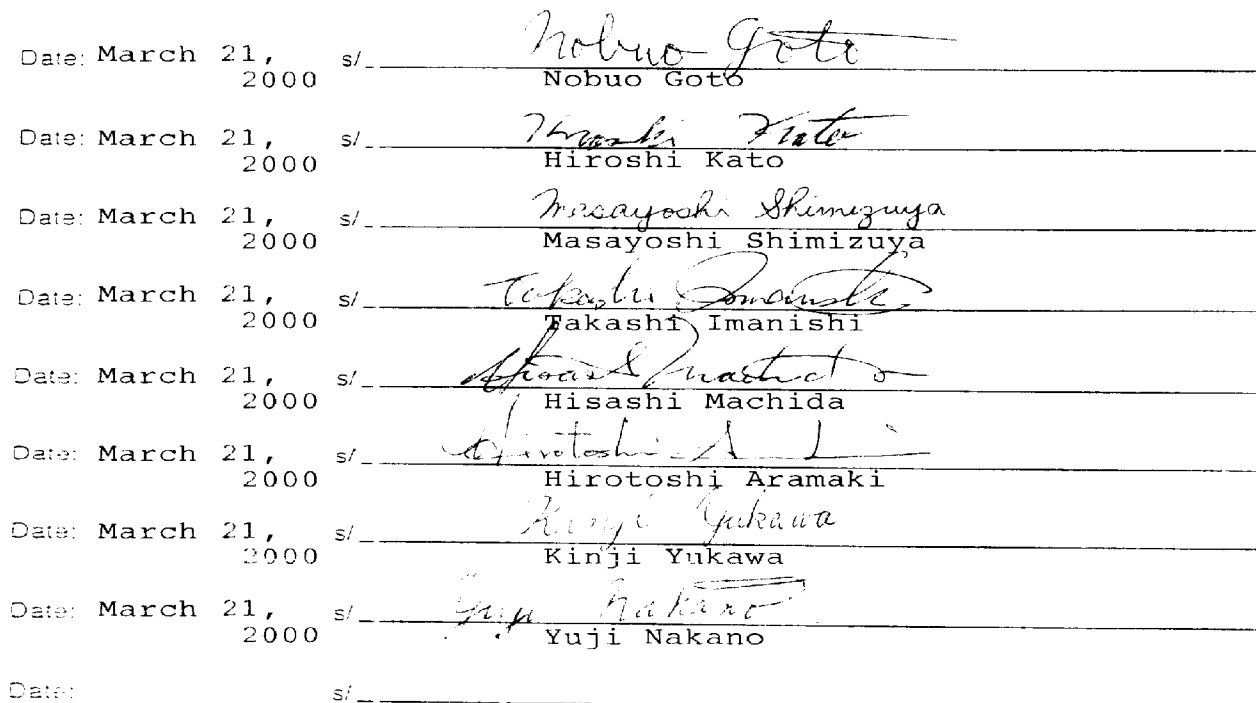 Date: March 21, s/ Nobuo Goto
2000 Nobuo Goto
Date: March 21, s/ Hiroshi Kato
2000 Hiroshi Kato
Date: March 21, s/ Masayoshi Shimizuya
2000 Masayoshi Shimizuya
Date: March 21, s/ Takashi Imanishi
2000 Takashi Imanishi
Date: March 21, s/ Hisashi Machida
2000 Hisashi Machida
Date: March 21, s/ Hirotoshi
2000 Hirotoshi Aramaki
Date: March 21, s/ Kinji Yukawa
2000 Kinji Yukawa
Date: March 21, s/ Yuji Nakano
2000 Yuji Nakano
Date: s/